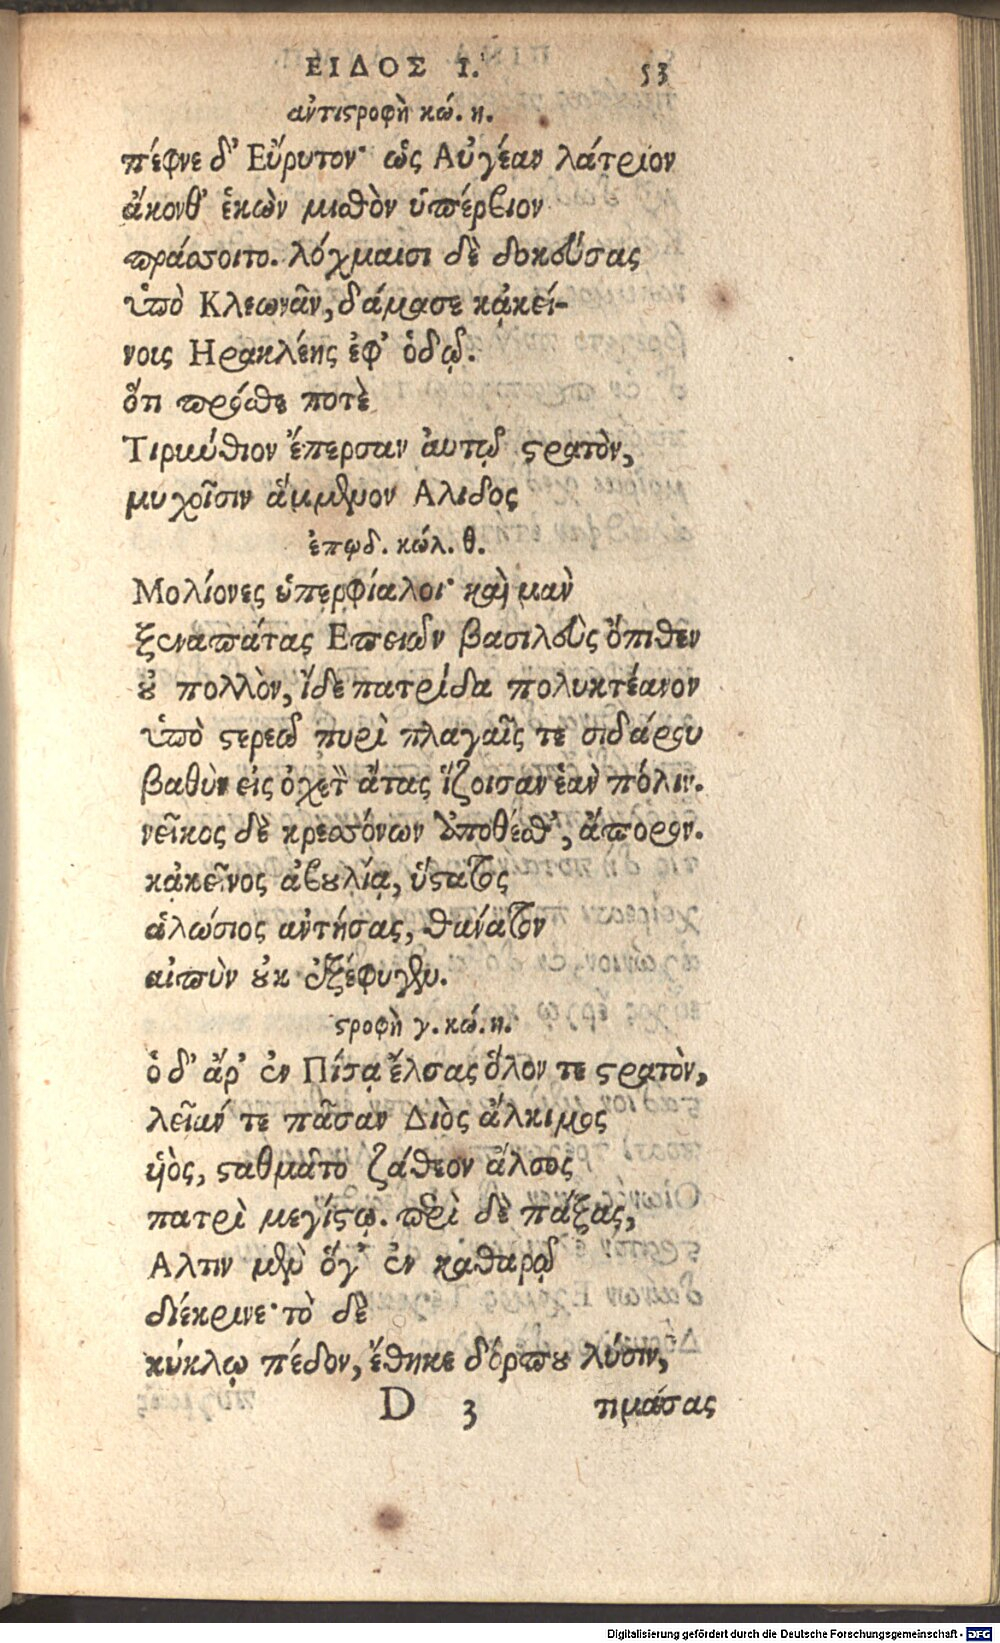 ΕΙΔΟΣ Ι. 53
ἀντιστροφὴ κώ. η.
πέφνε δ' Εὔρυτον· ὡς Αὐγέαν λάτριον
ἄκονθ' ἑκὼν μισθὸν ὑπέρβιον
πράσσοιτο. λόχμαισι δὲ δοκεύσας
ὑπὸ Κλεωνᾶν, δάμασε κᾀκεί-
νοις Ηρακλέης ἐφ' ὁδῷ.
ὅτι πρόσθε ποτὲ
Τιρυνθιον ἔπερσαν ἀυτῷ στρατὸν,
μυχοῖσιν ἅμμενον Αλιδος
ἐπῳδ. κώλ. θ.
Μολίονες ὑπερφίαλοι· καὶ μαν
ξεναπάτας Επειῶν βασιλεὺς ὄπιθεν
οὐ πολλὸν, ἴδε πατρίδα πολυκτέανον
ὑπὸ στερεῷ πυρὶ πλαγαῖς τε σιδάρου
βαθὺν εἰς ὀχετ ἄτας ἵζοισαν ἑὰν πόλιν.
νεῖκος δὲ κρεσσόνων ἀποθέσθ', ἄπορον.
κᾀκεῖνος ἀβουλίᾳ, ὕστατος
ἁλώσιος ἀντήσας, θάνατον
αἰπὺν οὐκ ἐξέφυγεν.
στροφὴ γ. κώ. η.
ὁ δ' ἄρ' ἐν Πίσᾳ ἔλσας ὅλον τε στρατὸν,
λείαν τε πᾶσαν Διὸς ἄλκιμος
υἱὸς, σταθμᾶτο ζάθεον ἄλσος
πατρὶ μεγίστῳ. περὶ δὲ πάξας,
Αλτιν μὲν ὅγ' ἐν καθαρῷ
διέκρινε· τὸ δὲ
κύκλῳ πέδον, ἔθηκε δόρπου λύσιν,
D 3 τιμάσας
Digitalisierung gefördert durch die Deutsche Forschungsgemeinschaft - DFG